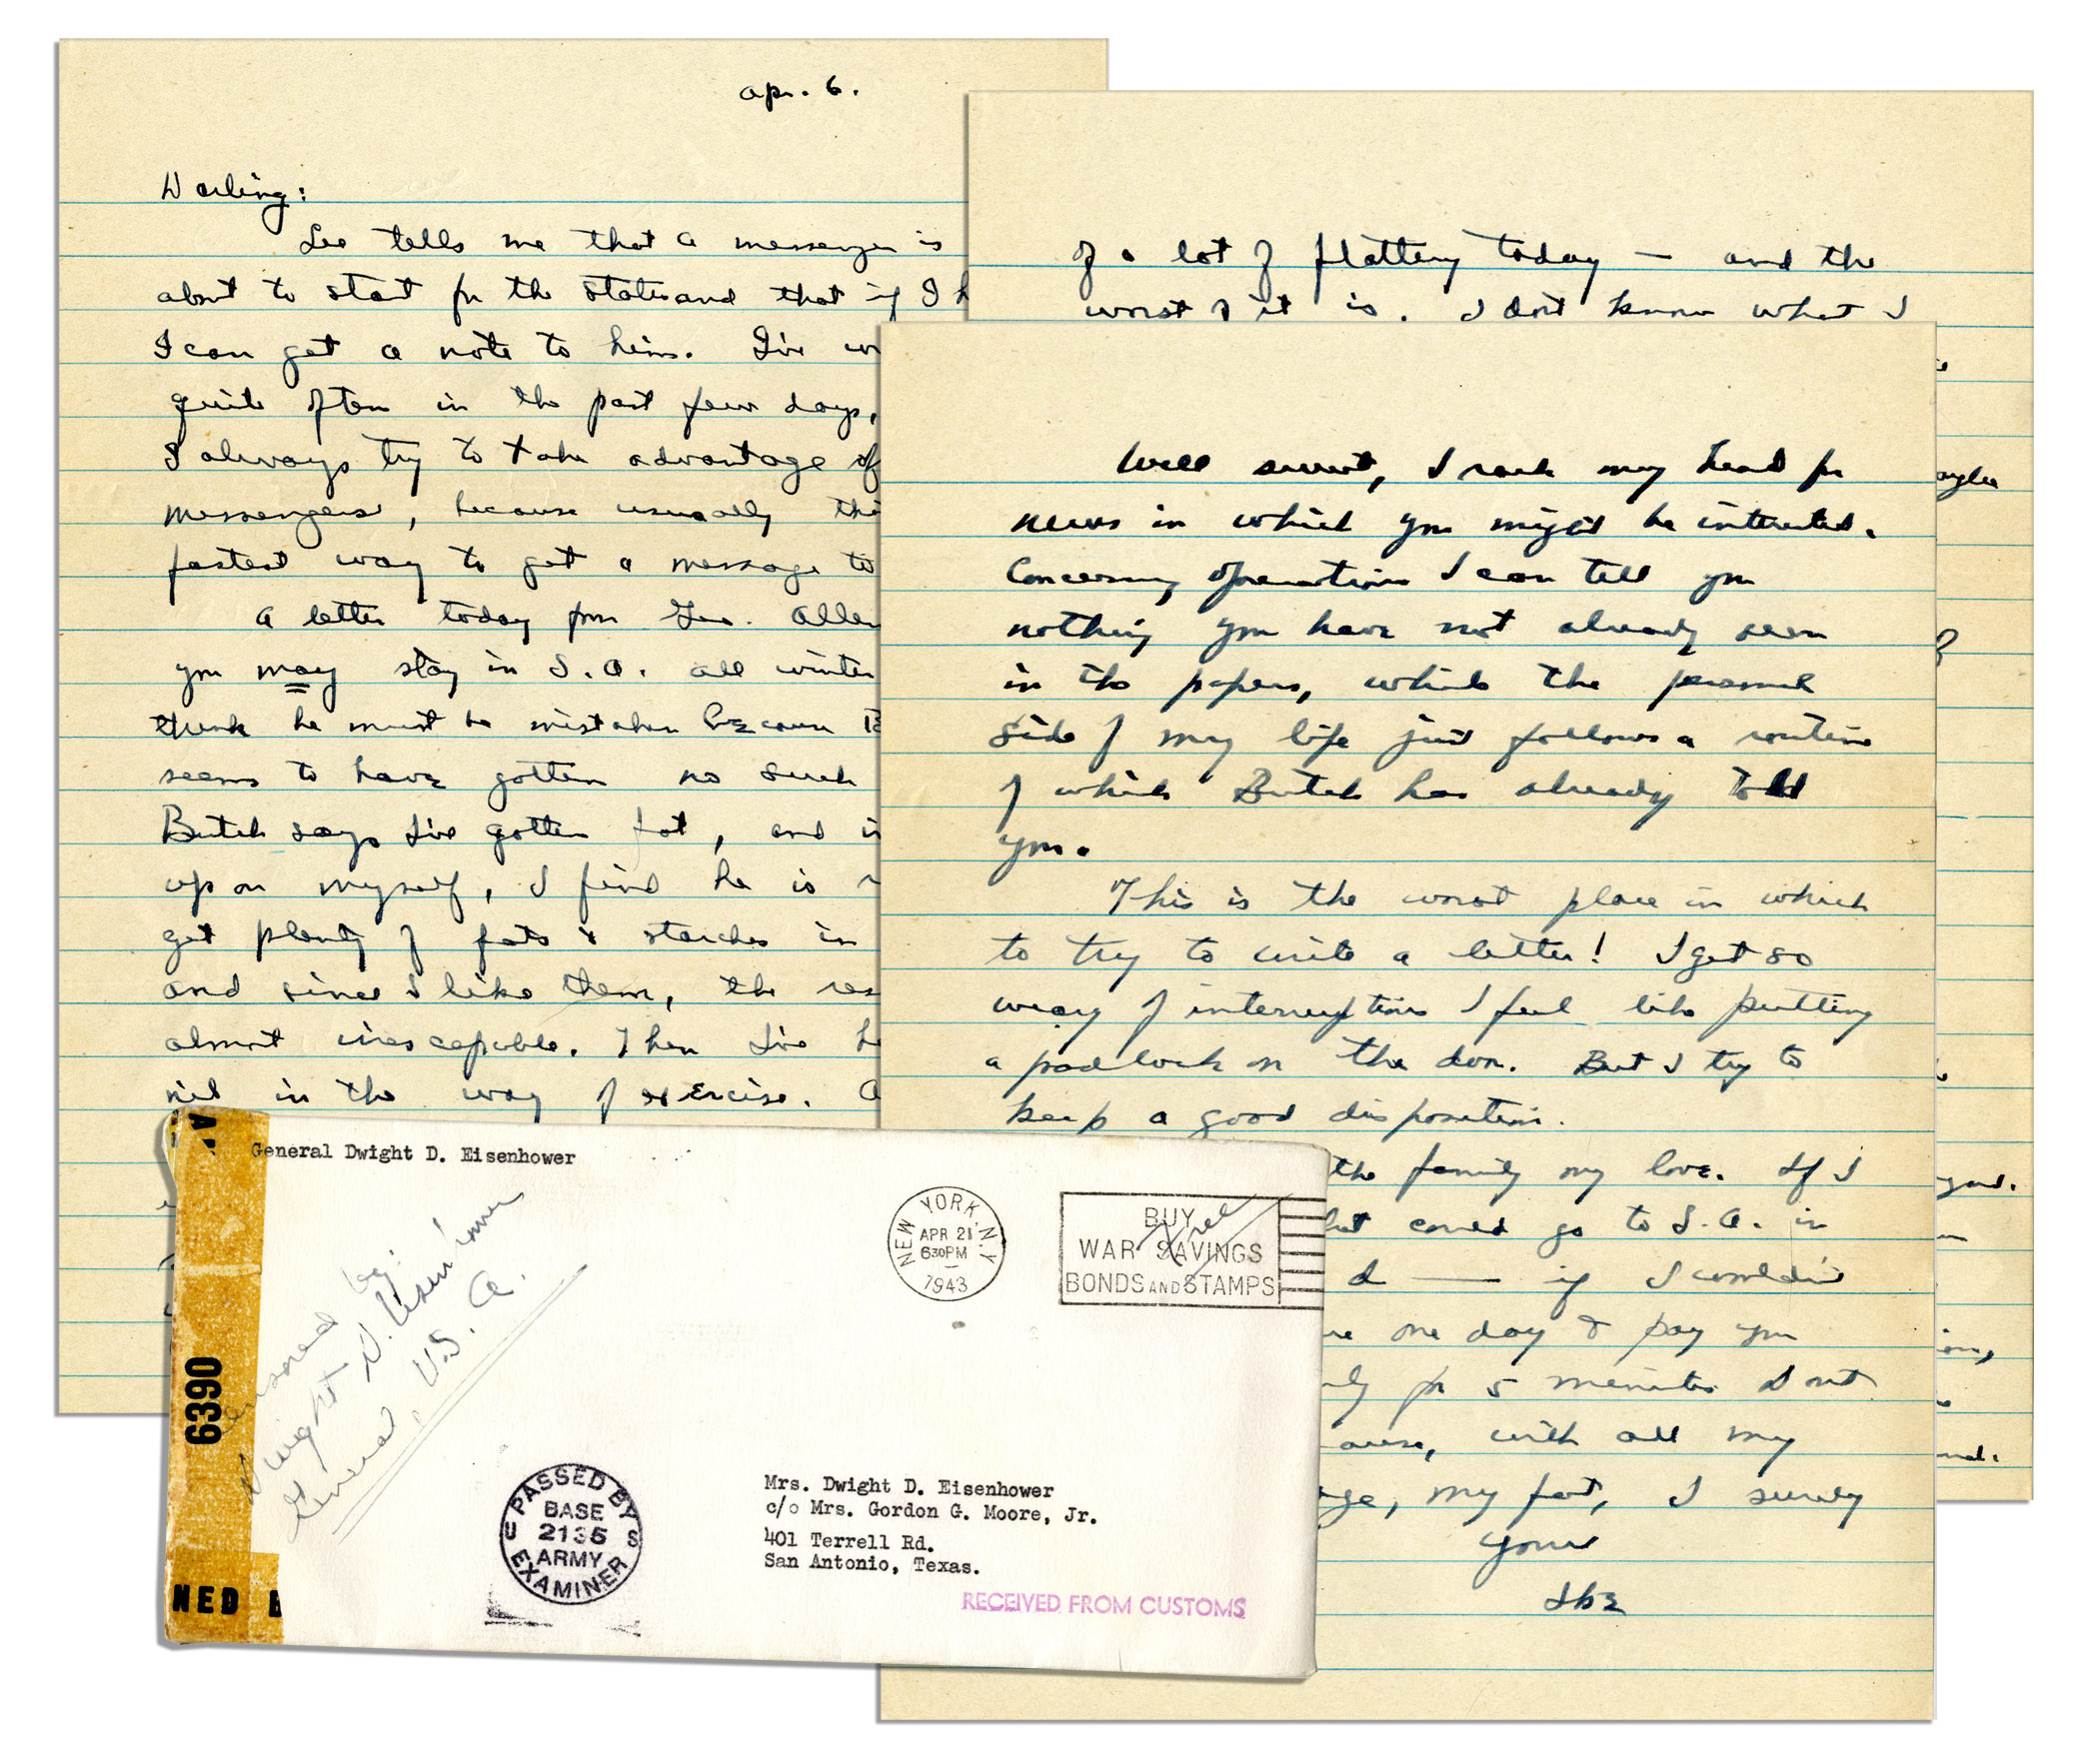 Apr. 6.
Darling:
Lee tells me that a messenger is
about to start for the states and that if I h
I can get a note to him. I've w
quite often in the past few days,
I always try to take advantage of
messengers, because usually thi
fastest way to get a message to
A letter today from Geo. Allen
you may stay in S.A. all winter
think he must be mistaken because B
seems to have gotten no such
Butch says I've gotten fat, and in
upon myself, I find he is r
get plenty of fats & starches in
and since I like them, the res
almost inescapable. Then I've h
nil in the way of exercise. A
of a lot of flattery today — and the
worst of it is. I don't know what I
Well sweet, I rack my head for
news in which you might be interested.
Concerning operations I can tell you
nothing you have not already seen
in the papers, while the personal
side of my life just follows a routine
of which Butch has already told
you.
This is the worst place in which
to try to write a letter! I get so
weary of interruptions I feel like putting
a padlock on the door. But I try to
keep a good disposition.
the family my love. If I
hat could go to S.A. in
d — if I wouldn't
one day & pay you
nly for 5 minutes. Don't
ause, with all my
age, my fat, I surely
Yours
Ike
General Dwight D. Eisenhower
Censored by:
Dwight D. Eisenhower
General, U.S.A.
6390
NED B
NEW YORK, N.Y.
APR 21
630PM
1943
BUY
WAR SAVINGS
BONDS AND STAMPS
Free
PASSED BY
BASE
2135
ARMY
EXAMINER
U S
Mrs. Dwight D. Eisenhower
c/o Mrs. Gordon G. Moore, Jr.
401 Terrell Rd.
San Antonio, Texas.
RECEIVED FROM CUSTOMS